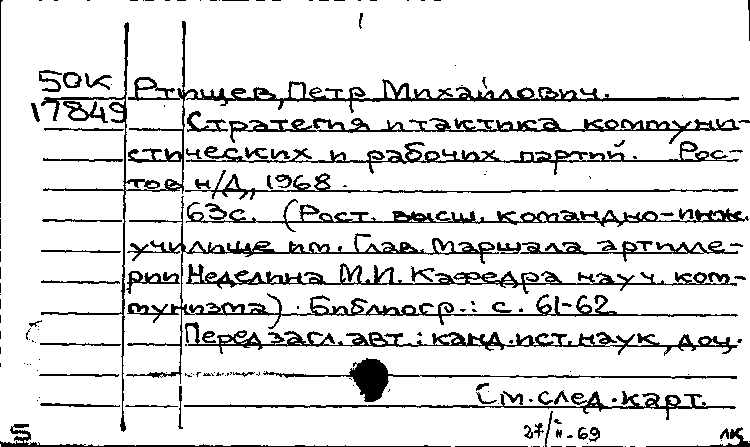 1
50К Ртищев, Петр Михайлович.
17849 Стратегия и тактика коммуни-
стических и рабочих партий. Рос-
тов н/Д., 1968.
63с. (Рост. высш. командно-инж.
училище им. Глав. Маршала артилле-
рии Неделина М.И. Кафедра науч. ком-
мунизма). Библиогр.: с. 61-62
Перед загл. авт.: канд. ист. наук, доц.
См. след. карт.
27/II-69